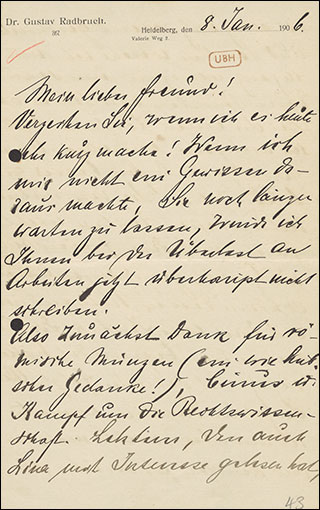 Dr. Gustav Radbruch.
Heidelberg, den 8. Jan. 1906.
UBH
Mein lieber Freund!
Verzeihen Sie, wenn ich es heute
sehr kurz mache! Wenn ich
mir nicht ein Gewissen da-
raus machte, Sie noch länger
warten zu lassen, würde ich
Ihnen bei der Überlast an
Arbeiten jetzt überhaupt nicht
schreiben.
Also zunächst Dank für rö-
mische Münzen (ein wie hüb-
scher Gedanke!),
Kampf um die Rechtswissen-
schaft. Letztern, den auch
Lina mit Interesse gelesen hat,
43